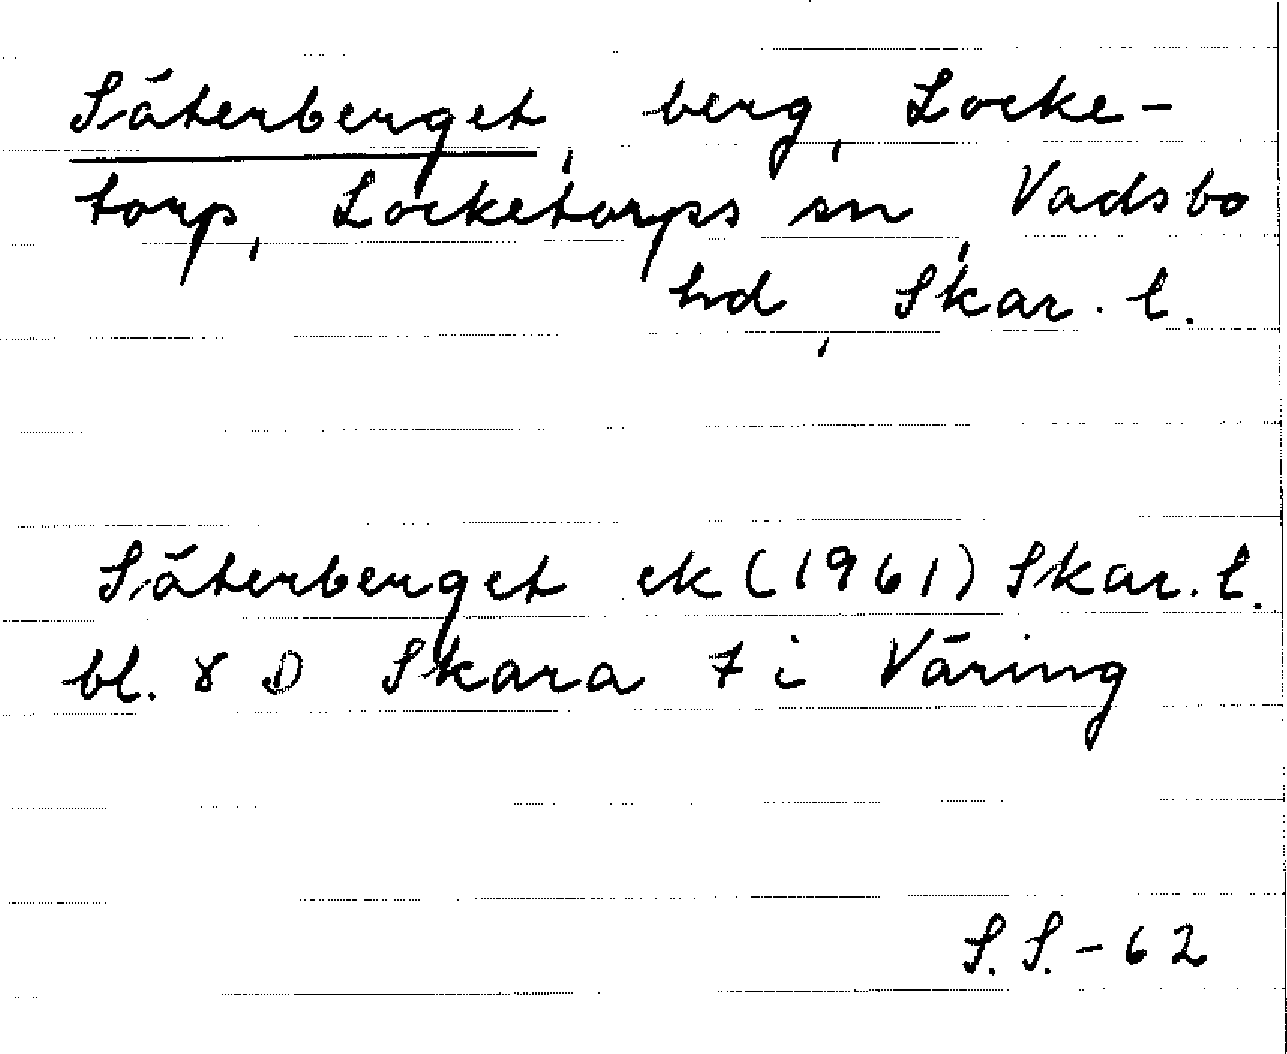 Säterberget, berg, Locke-
torp, Locketorps sn, Vadsbo
hd, Skar. l.
Säterberget ek (1961) Skar. l.
bl. 8 D Skara 7 i Väring
S. S. - 62